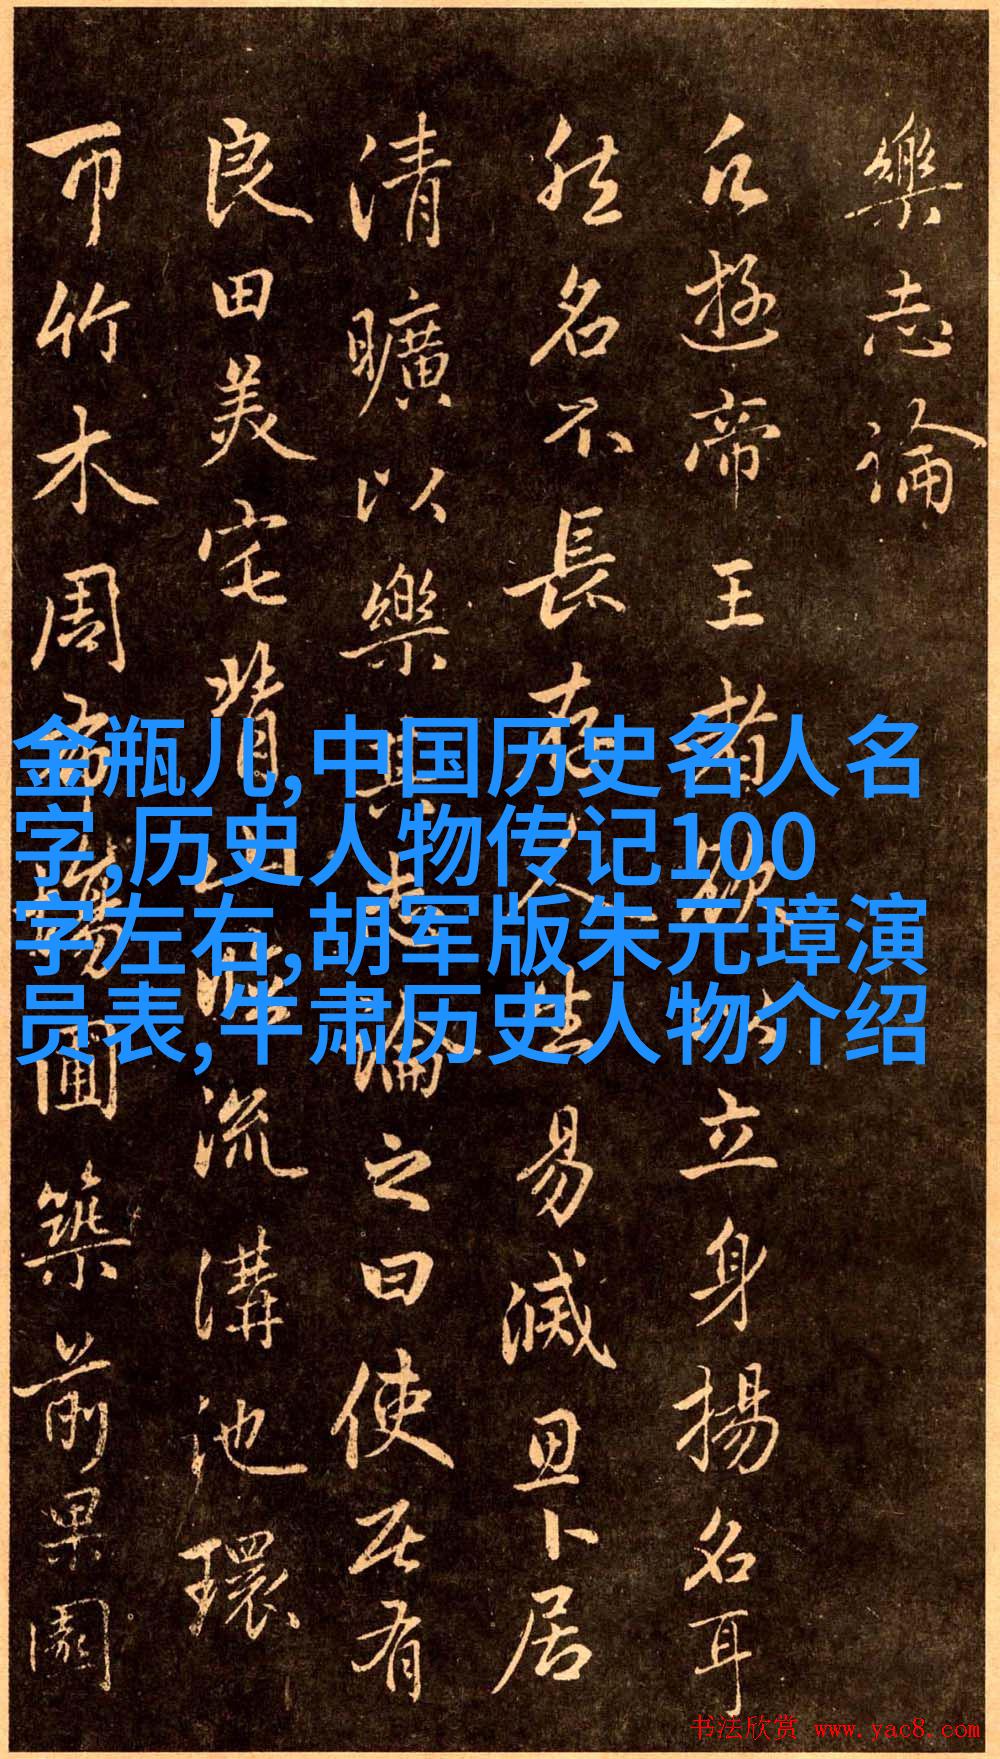 樂志論
凡遊帝王者欲以立身揚名耳
然名不長存人生易滅思卜居
清曠以樂其志論之曰使居有
良田美宅背山臨流溝池環
帀竹木周布場圃築前果園
金瓶儿,中国历史名人名
字,历史人物传记100
字左右,胡军版朱元璋演
员表,牛肃历史人物介绍
书法欣赏 www.yac8.com